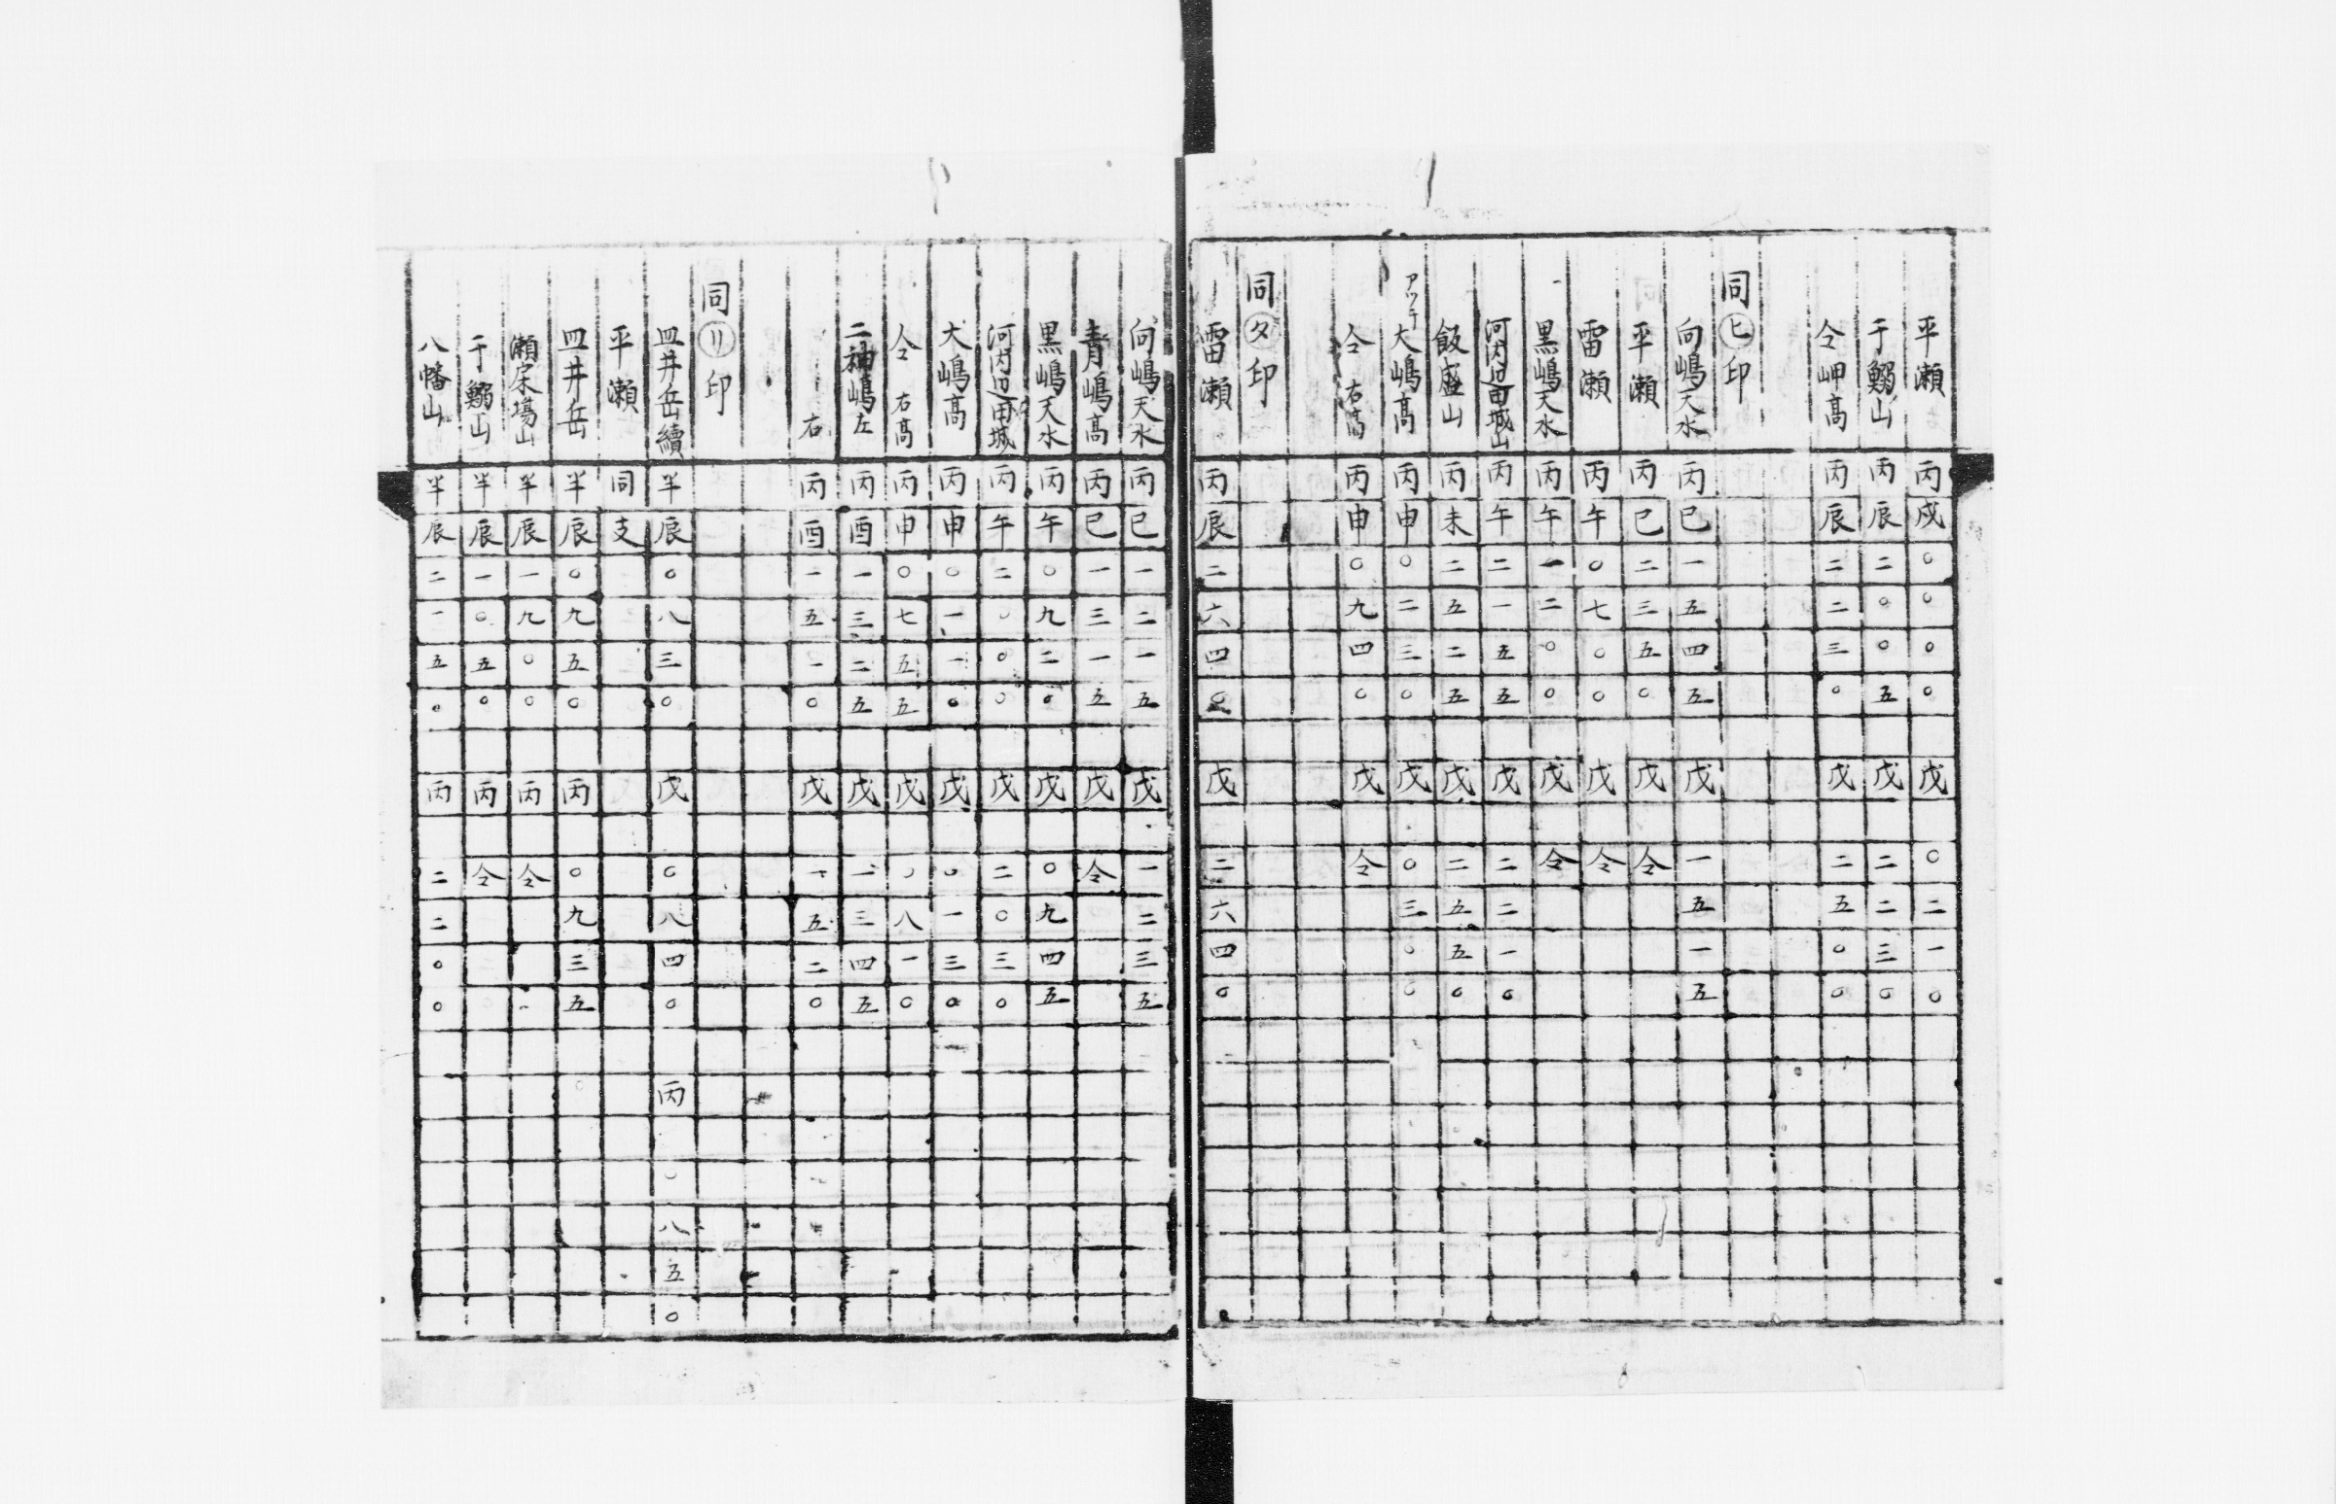 平瀬 丙 戌 〇 〇 〇 〇 戊 〇 二 一 〇
干鰯山 丙 辰 二 〇 〇 五 戊 二 二 三 〇
仝岬高 丙 辰 二 二 三 〇 戊 二 五 〇 〇
同㋪印
向嶋天水 丙 巳 一 五 四 五 戊 一 五 一 五
平瀬 丙 巳 二 三 五 〇 戊 仝
雷瀬 丙 午 〇 七 〇 〇 戊 仝
黒嶋天水 丙 午 一 二 〇 〇 戊 仝
河内辺田城山 丙 午 二 一 五 五 戊 二 二 一 〇
飯盛山 丙 未 二 五 二 五 戊 二 五 五 〇
大嶋高 丙 申 〇 二 三 〇 戊 〇 三 〇 〇
仝 右高 丙 申 〇 九 四 〇 戊 仝
同㋟印
雷瀬 丙 辰 二 六 四 〇 戊 二 六 四 〇
向嶋天水 丙 巳 一 二 一 五 戊 一 二 三 五
青嶋高 丙 巳 一 三 一 五 戊 仝
黒嶋天水 丙 午 〇 九 二 〇 戊 〇 九 四 五
河内辺田城 丙 午 二 〇 〇 〇 戊 二 〇 三 〇
大嶋高 丙 申 〇 一 一 〇 戊 〇 一 三 〇
仝 右高 丙 申 〇 七 五 五 戊 〇 八 一 〇
二神嶋左 丙 酉 一 三 二 五 戊 一 三 四 五
右 丙 酉 一 五 一 〇 戊 一 五 二 〇
同㋷印
皿井岳續 半 辰 〇 八 三 〇 戊 〇 八 四 〇 丙 〇 八 五 〇
平瀬 同 支
皿井岳 半 辰 〇 九 五 〇 丙 〇 九 三 五
瀬戻場山 半 辰 一 九 〇 〇 丙 仝
干鰯山 半 辰 一 〇 五 〇 丙 仝
八幡山 半 辰 二 一 五 〇 丙 二 二 〇 〇